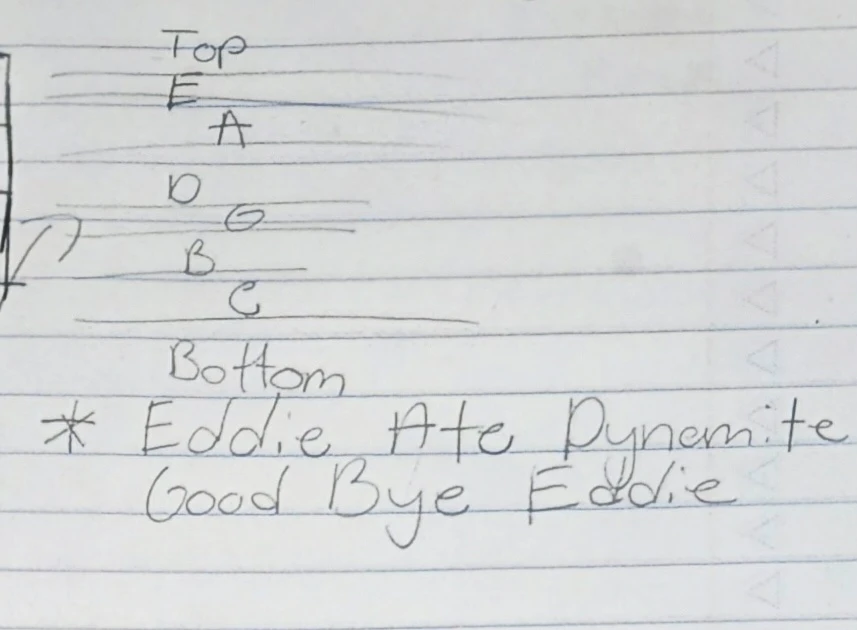 Top
E
A
D
G
B
C
Bottom
* Eddie Ate Dynamite
Good Bye Eddie